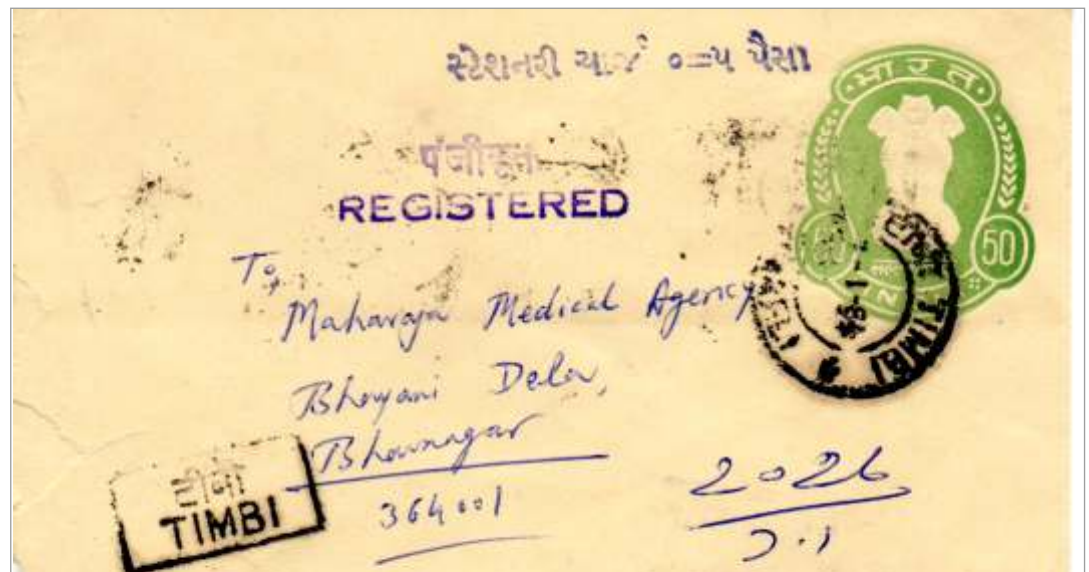 સ્ટેશનરી ચાર્જ ૦=૫ પૈસા
भारत
पंजीकृत
REGISTERED
50
To,
Maharaja Medical Agency
Bhayani Dela,
Bhavnagar
364001
TIMBI
टीबी
TIMBI
2026